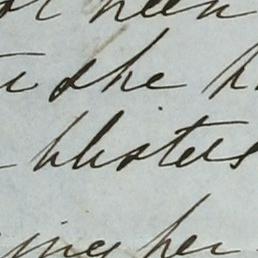 been
she h
blisters
ing her